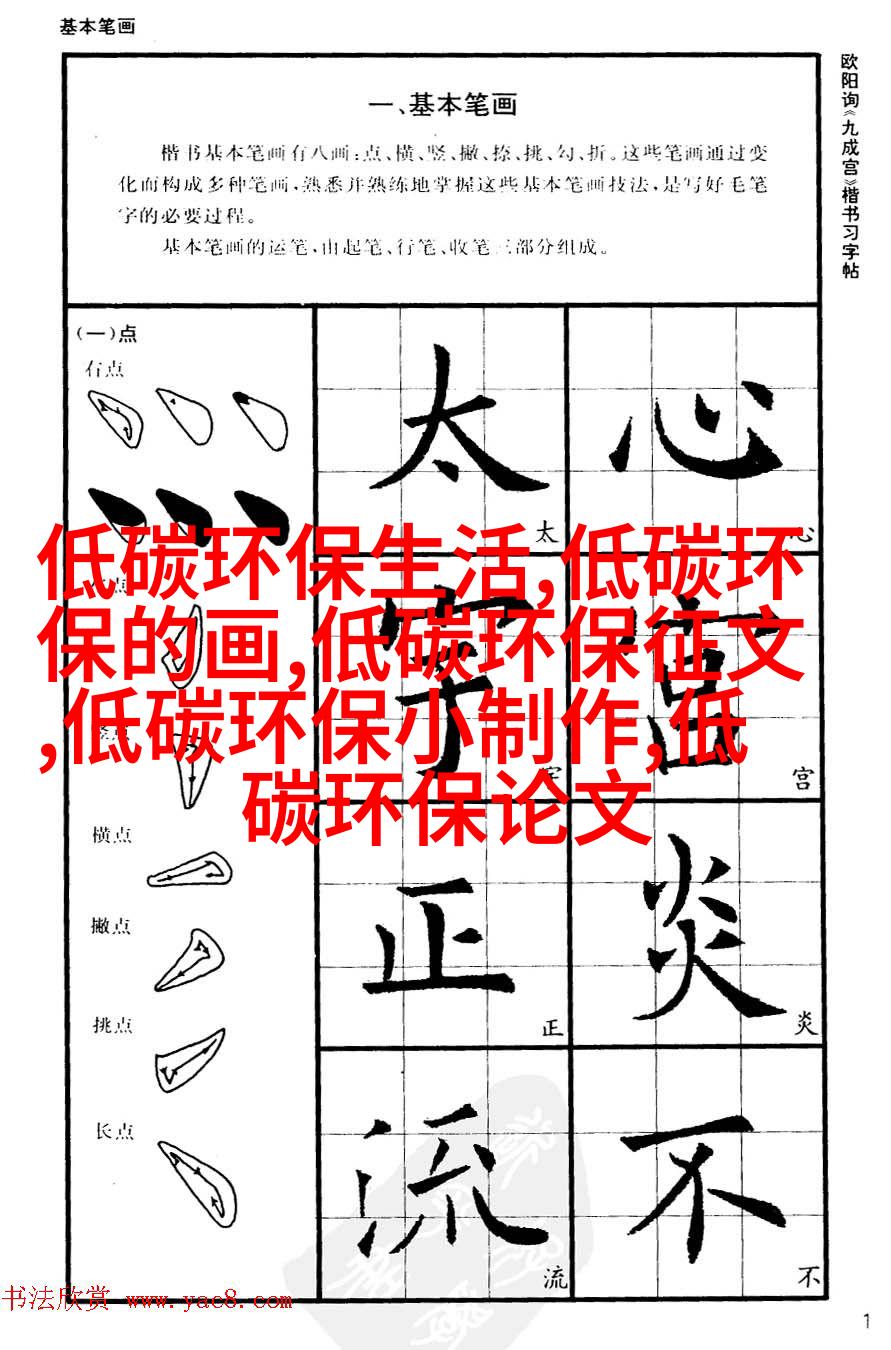 基本笔画
欧阳询《九成宫》楷书习字帖
一、基本笔画
楷书基本笔画有八画：点、横、竖、撇、捺、挑、勾、折。这些笔画通过变
化而构成多种笔画，熟悉并熟练地掌握这些基本笔画技法，是写好毛笔
字的必要过程。
基本笔画的运笔，由起笔、行笔、收笔三部分组成。
(一)点
右点
太
太
心
心
低碳环保生活,低碳环
保的画,低碳环保征文
,低碳环保小制作,低
碳环保论文
字
字
宫
宫
横点
撇点
正
正
炎
炎
挑点
长点
流
流
不
不
书法欣赏 www.yac8.com
1